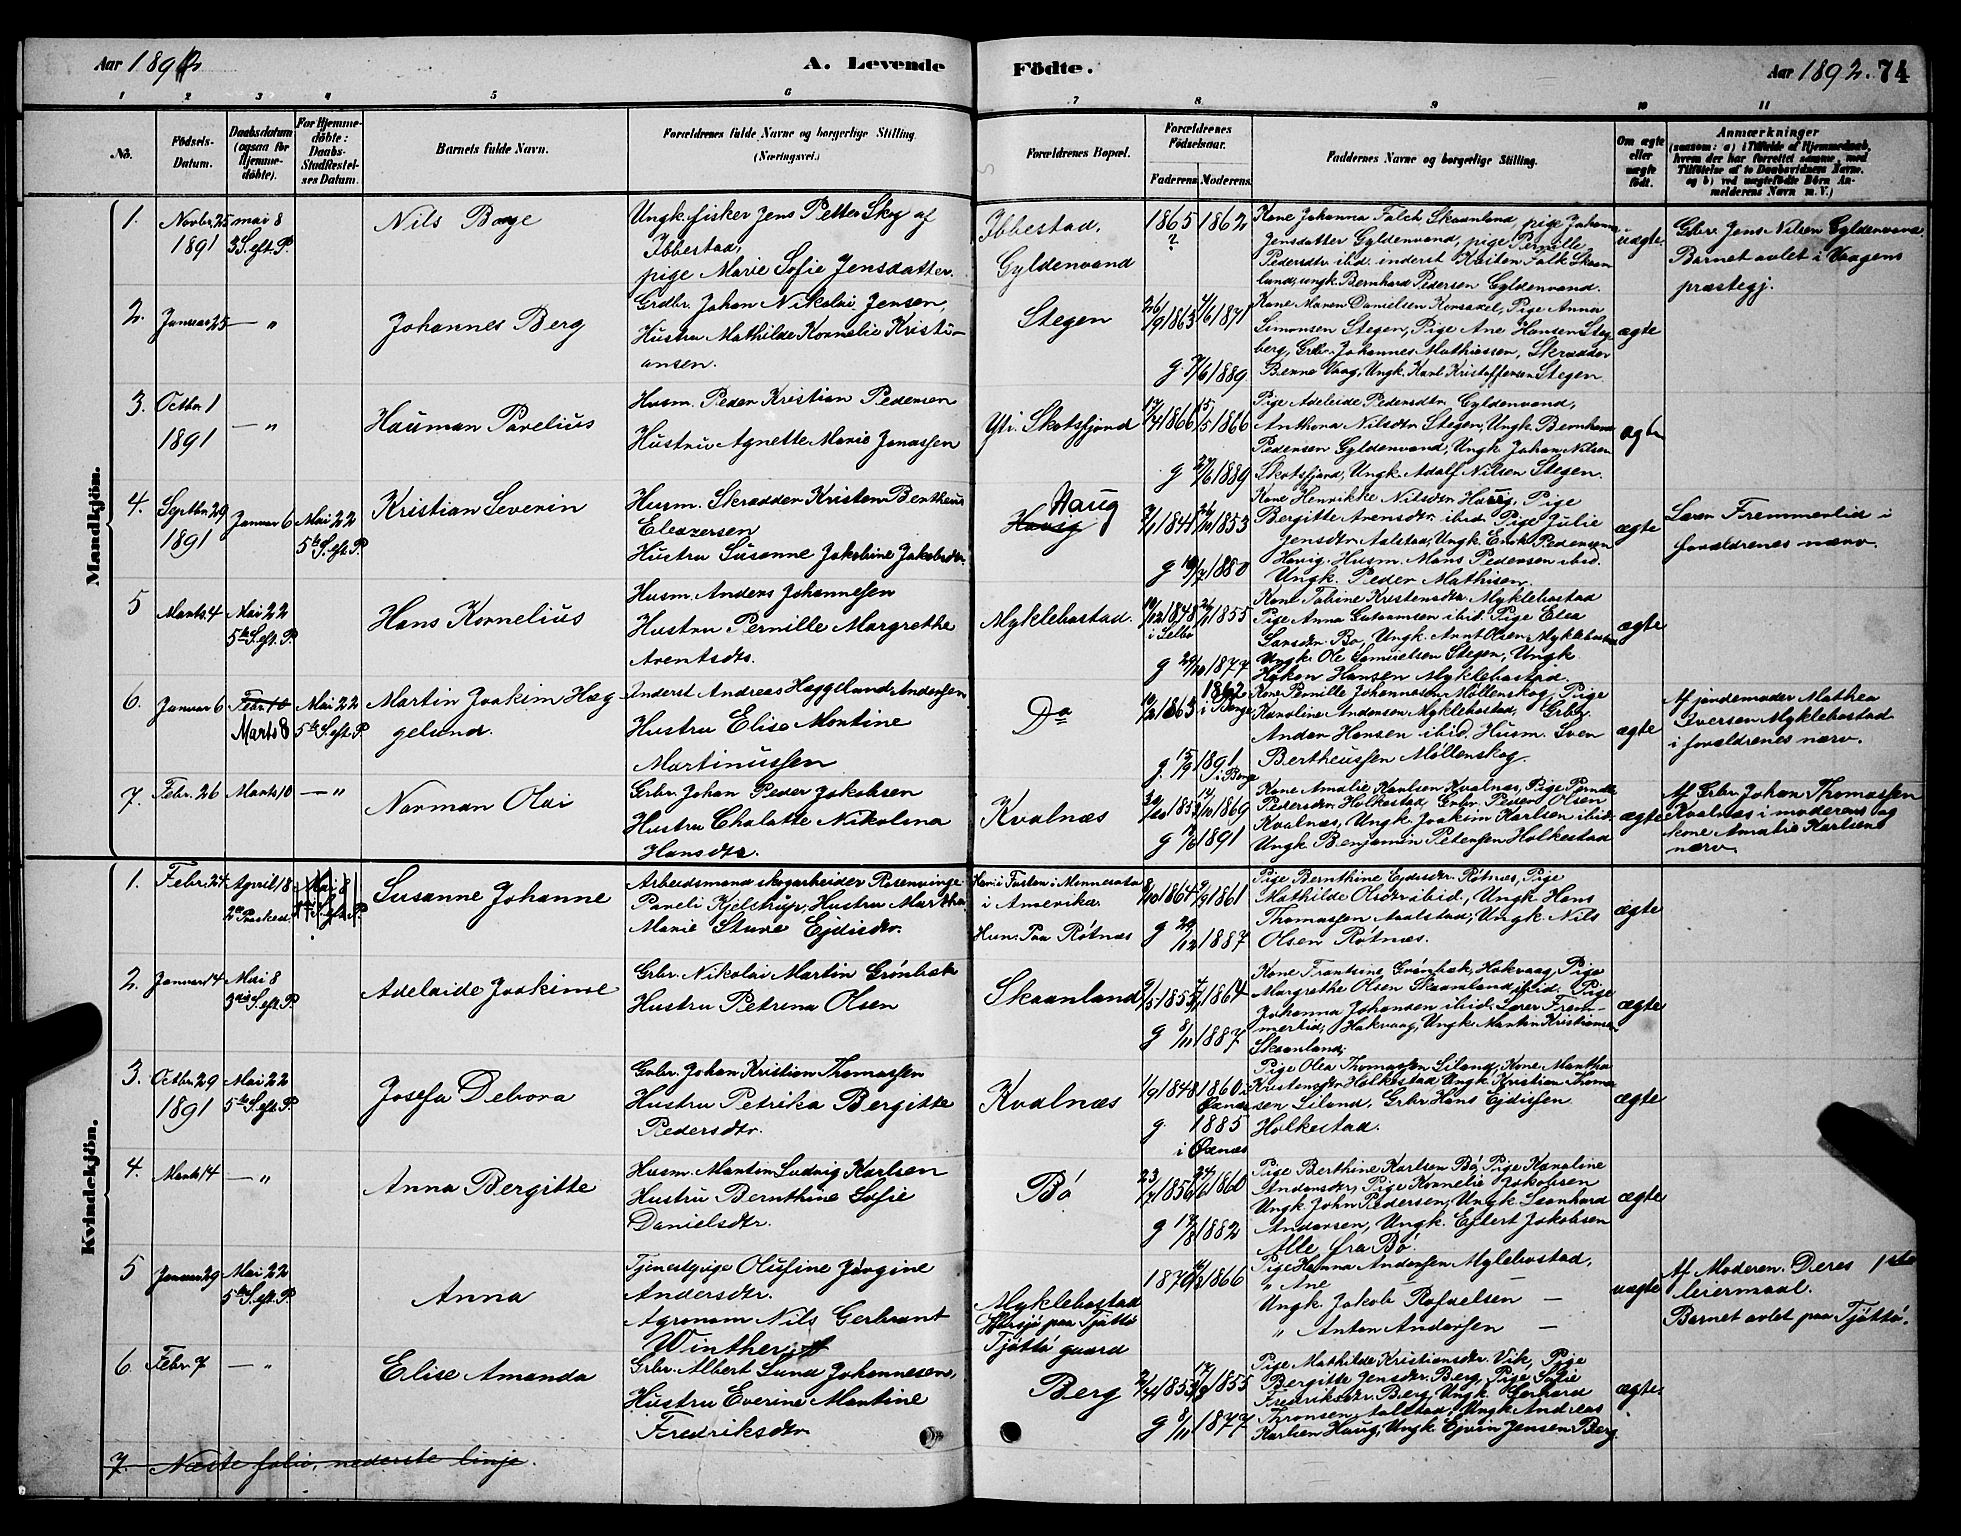 Aar 1892
A. Levende
Födte.
Aar 1892. 74
1 2 3 4 5 6 7 8 9 10 11
No.
Födsels-Datum.
Daabsdatum (ogsaa for Hjemme-döbte).
For Hjemme-döbte: Daabs-Stadfestel-ses Datum.
Barnets fulde Navn.
Forældrenes fulde Navne og borgerlige Stilling. (Næringsvei.)
Forældrenes Bopæl.
Forældrenes Födselsaar.
Faderens Moderens
Faddernes Navne og borgerlige Stilling.
Om ægte eller uægte födt.
Anmærkninger
(saasom: a) i Tilfælde af Hjemmedaab, hvem der har forrettet samme, med Tilföielse af to Daabsvidners Navne. og b) ved uægtefödte Börn An-melderens Navn m. V.)
Mandkjön.
1. Novbr. 25 1891
mai 8 3 S. eft. P.
Nils Baye
Ungk. fisker Jens Petter Skog af
Ibbestad,
pige Marie Sofie Jensdatter.
Ibbestad.
Gyldenvand
1865 ? 1862
Kone Johanna Falch Skaanland, pige Johanna
Jensdatter Gyldenvand, pige Pernille
Pedersdtr ibid. inderst Kristen Falk Skaan
land, ungk. Bernhard Pedersen Gyldenvand.
uægte
Grbr. Jens Nilsen Gyldenvand.
Barnet avlet i Vaagens
præstegj.
2. Januar 25 — "
Johannes Berg
Grdbr. Johan Nikolai Jensen,
Hustru Mathilde Kornelie Kristi-
ansen.
Stegen
26/9 1863 4/6 1871
g 7/6 1889
Kone Maren Danielsen Korsakel, Pige Anna
Simonsen Stegen, Pige Ane Hansen Steg
berg, Grbr. Johannes Mathiassen, Skrædder
Benne Vaag, Ungk. Karl Kristoffersen Stegen.
ægte
3. Octbr. 1 1891 — "
Hauman Parelius
Husm. Peder Kristian Pedersen
Hustru Agnette Marie Jonassen
Ytr. Skotsfjord
17/4 1866 15/5 1866
g 27/6 1889
Pige Adeleide Pedersdtr. Gyldenvand,
Anthora Nilsdtr Stegen, Ungk. Bernhard
Pedersen Gyldenvand, Ungk Johan Nilsen
Skotsfjord, Ungk. Adolf Nilsen Stegen.
ægte
4. Septbr. 29 1891
Januar 6
Mai 22 5te S. eft. P.
Kristian Severin
Husm. Skrædder Kristen Bertheus
Eleazersen
Hustru Susanne Jakobine Jakobsdtr.
Haug
1841 1853
g 1880
Kone Henrikke Nilsdtr Haug, Pige
Bergitte Arensdtr. ibid. Pige Julie
Jensdtr. Aalstad, Ungk. Enok Pedersen
Haug. Husm. Mons Pedersen ibid.
Ungk. Peder Mathisen.
ægte
Lærer Fremmerlid i
forældrenes nærv.
5 Marts 4
Mai 22 5te S. eft. P.
Hans Kornelius
Husm. Anders Johannesen
Hustru Pernille Margrethe
Arentsdtr.
Myklebostad.
1848 i Selbo 1855
g 1877
Kone Tobine Kristensdtr. Myklebostad
Pige Anna Gutormsen ibid. Pige Elea
Larsdtr. Bø, Ungk. Arnt Olsen Myklebostad
Ungk. Ole Samuelsen Stegen, Ungk.
Håkon Hansen Myklebostad.
ægte
6. Januar 6
Febr 10
Marts 8
Mai 22 5te S. eft. P.
Martin Joakim Hæg-
gelund.
Inderst Andreas Heggelund Andersen
Hustru Elise Martine
Martinussen
Do
1863 1862 i Borge
g. 15/9 1891 i Borge
Kone Pernille Johannesen Møllenskog, Pige
Karoline Andersen Myklebostad, Grbr.
Anders Hansen ibid. Husm. Sven
Bertheussen Møllenskog.
ægte
Af jordemoder Mathea
Iversen Myklebostad
i forældrenes nærv.
7. Febr. 26 Marts 10 — "
Norman Olai
Grbr. Johan Peder Jakobsen
Hustru Chalotte Nikolina
Hansdtr.
Kvalnæs
1852 1869
g 1891
Kone Amalie Karlsen Kvalnæs, Pige
Pedersdtr. Holkestad, Grbr. Peder Olsen
Kvalnæs, Ungk. Joakim Karlsen ibid.
Ungk Benjamin Petersen Holkestad
ægte
Af Grbr. Johan Thomassen
Kvalnæs i moderens og
kone Amalie Karlsens
nærv.
Kvindekjön.
1. Febr. 24
April 18 2den Paasked.
Mai 8
Susanne Johanne
Arbeidsmand skogarbeider Rosenvinge
Paveli Kjelstrup, Hustru Martha
Marie Sture Ejdisdtr.
Han: i Fosten i Minnesota
i Amerika.
Hun: Paa Røtnæs
8/10 1864 9/9 1861
g 29/12 1887
Pige Bernthine Ejdisdtr. Røtnæs, Pige
Mathilde Olsdtr ibid., Ungk Hans
Thomassen Aalstad, Ungk Nils
Olsen Røtnæs.
ægte
2. Januar 14
Mai 8 3die S. eft. P.
Adelaide Joakime
Grbr. Nikolai Martin Grønbæk
Hustru Petrina Olsen
Skaanland
1855 1864
g 8/11 1887
Kone Frantsine Grønbæk, Hakvaag, Pige
Margrethe Olsen Skaanland, ibid. Pige
Johanna Johansen ibid. Lærer Frem-
merlid, Hakvaag, Ungk. Martin Kristiansen
Skaanland;
ægte
3. Octbr. 29 1891
Mai 22 5te S. eft. P.
Josefa Debora
Grbr. Johan Kristian Thomassen
Hustru Petrika Bergitte
Pedersdtr.
Kvalnæs
1/9 1848 1860 i Øxnæs
g. 1885 i Øxnæs
Pige Olea Thomassen Liland, Kone Martha
Kristensdtr Holkestad Ungk. Kristian Thomas
sen Liland, Grbr. Hans Ejdissen
Holkestad.
ægte
4. Marts 14 — "
Anna Bergitte
Husm. Martin Ludvig Karlsen
Hustru Bernthine Sofie
Danielsdtr.
Bø
1856 1860
g 17/8 1882
Pige Berthine Karlsen Bø, Pige Karoline
Andersdtr, Pige Kornelie Jakobsen
Ungk. John Pedersen, Ungk. Leonhard
Andersen, Ungk. Ejlert Jakobsen
Alle fra Bø.
ægte
5 Januar 29
Mai 22 5te S. eft. P.
Anna
Tjenestpige Olufine Jørgine
Andersdtr.
Agronom Nils Gerbrant
Winther
Myklebostad
Tjøttø gaard
1870 1866
Pige Hanna Andersen Myklebostad,
" Ane —
Ungk. Jakob Rafaelsen —
" Anton Andersen —
uægte
Af Moderen. Deres 1ste
leiermaal.
Barnet avlet paa Tjøttø.
6 Febr. 7 — "
Elise Amanda
Grbr. Albert Lund Johannesen,
Hustru Everine Martine
Fredriksdtr
Berg
1853 1855
g 8/11 1877
Pige Mathilde Kristiansdtr. Vik, Pige
Bergitte Jensdtr. Berg, Pige Sofie
Fredriksdtr. Berg, Ungk. Gerhard
Tronsen, Aalstad, Ungk Andreas
Karlsen Haug, Ungk Ejvin Jensen Berg.
ægte.
7. Næste folio, nederste linje.